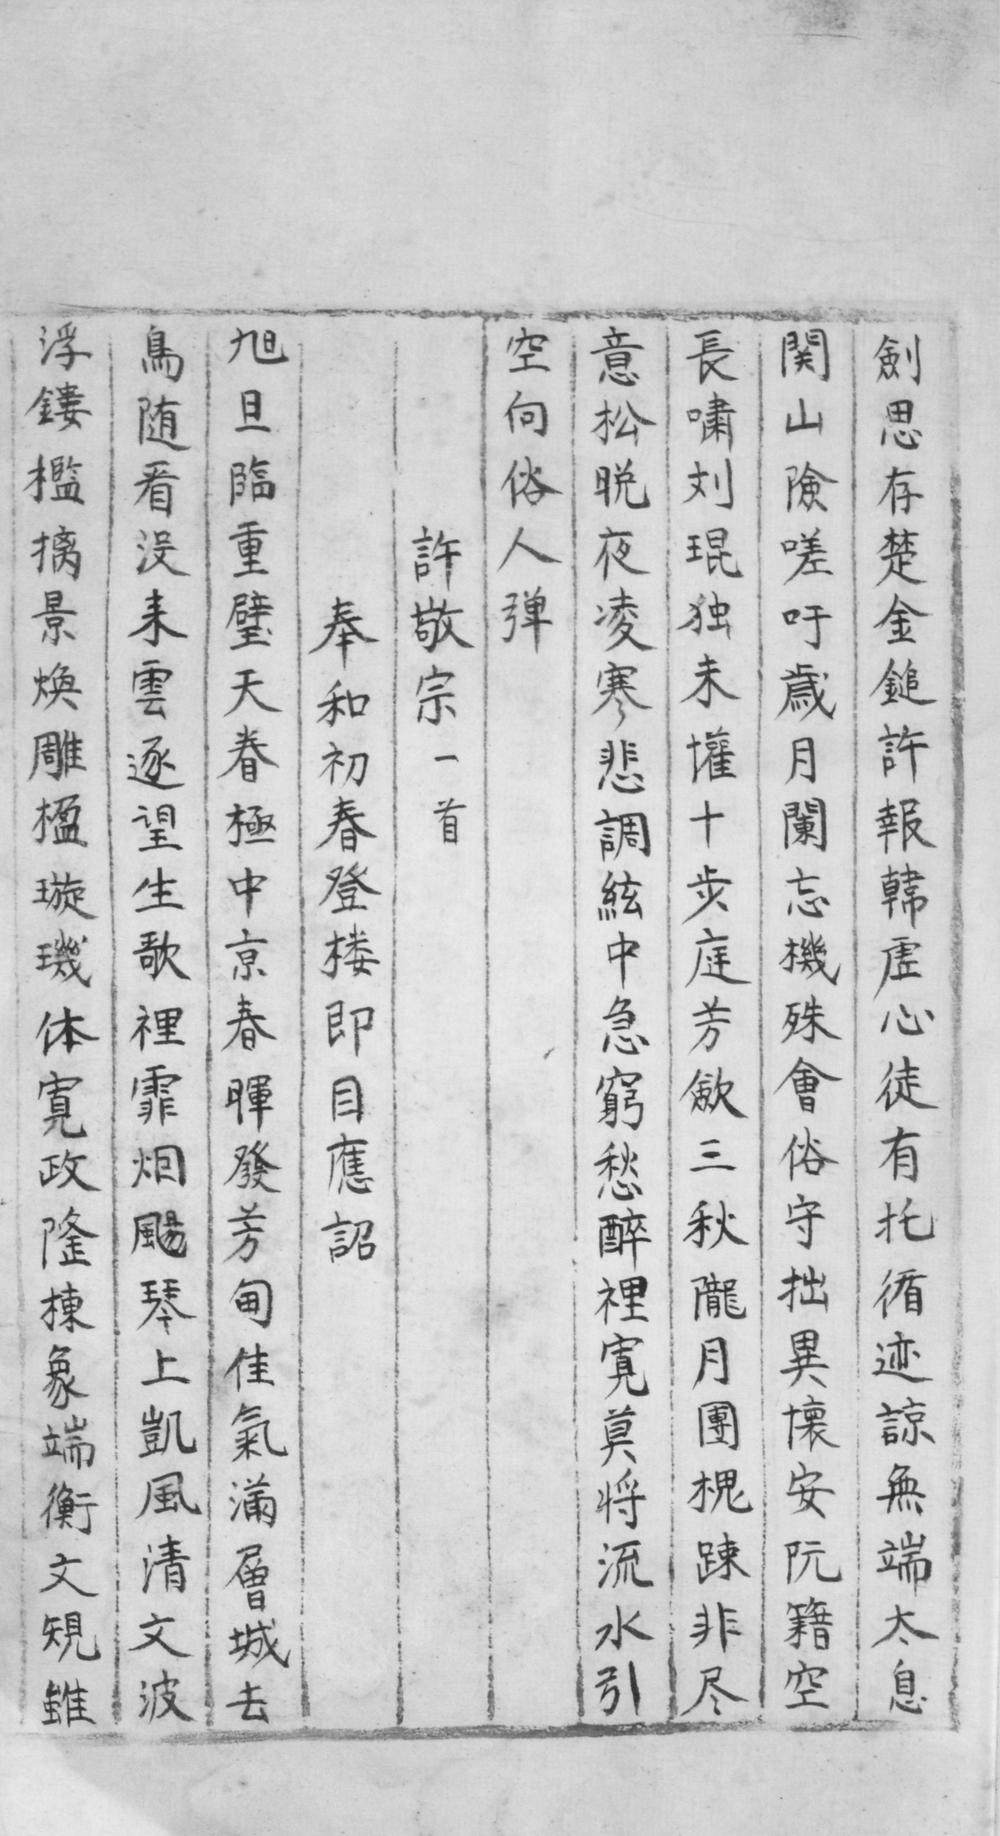 劍思存楚金鎚許報韓虚心徒有托循迹諒無端太息
関山險嗟吁歳月闌忘機殊會俗守拙異懐安阮籍空
長嘯刘琨独未懽十步庭芳歛三秋隴月團槐踈非尽
意松晩夜凌寒悲調絃中急窮愁醉裡寛莫将流水引
空向俗人弾
許敬宗一首
奉和初春登楼即目應詔
旭旦臨重璧天眷極中京春暉發芳甸佳氣滿層城去
鳥随看没来雲逐望生歌裡霏烟颺琴上凱風清文波
浮鏤檻摛景煥雕楹璇璣体寛政隆棟象端衡文規雖